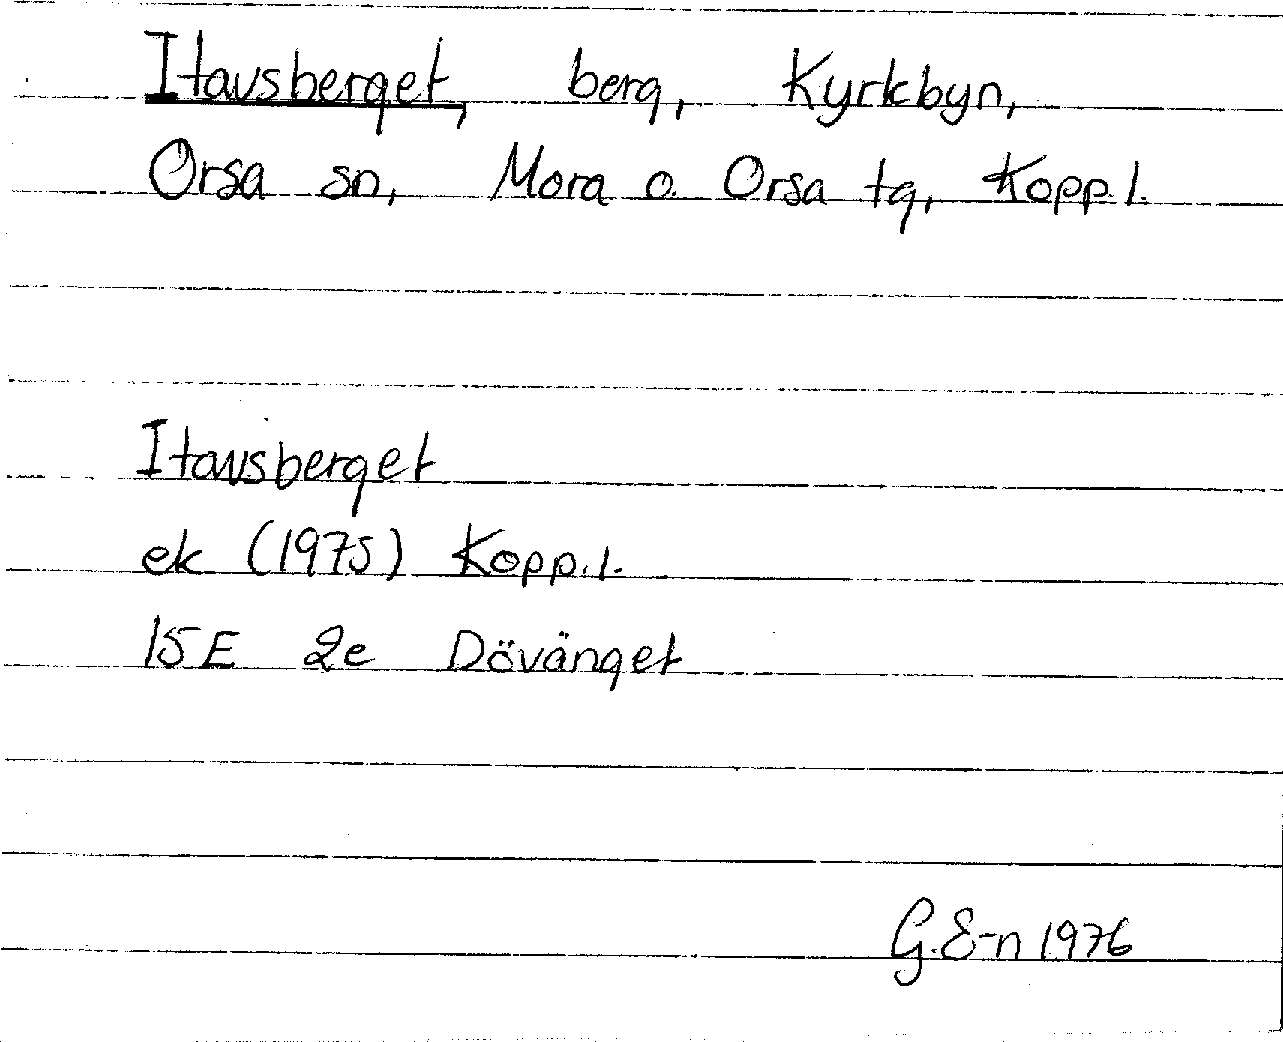 Itavsberget, berg, Kyrkbyn,
Orsa sn, Mora o. Orsa tg, Kopp. l.
Itavsberget
ek (1975) Kopp. l.
15E 2e Dövänget
G. E-n 1976